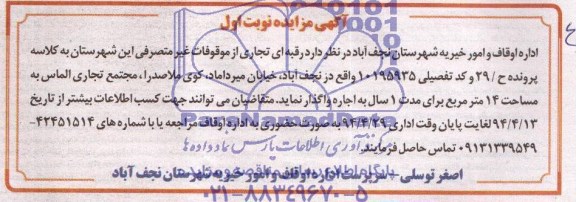 آگهی مزایده نوبت اول
اداره اوقاف و امور خیریه شهرستان نجف آباد در نظر دارد رقبه ای تجاری از موقوفات غیر متصرفی این شهرستان به کلاسه
پرونده ح / ۲۹ و کد تفصیلی ۱۰۱۹۵۹۳۵ واقع در نجف آباد، خیابان میرداماد، کوی ملاصدرا ، مجتمع تجاری الماس به
مساحت ۱۴ متر مربع برای مدت ۱ سال به اجاره واگذار نماید. متقاضیان می توانند جهت کسب اطلاعات بیشتر از تاریخ
۹۴/۴/۱۳ لغایت پایان وقت اداری ۹۴/۴/۲۹ به صورت حضوری به اداره اوقاف مراجعه یا با شماره های ۴۲۴۵۱۵۱۴-
۰۹۱۳۱۳۳۹۵۴۹ تماس حاصل فرمایند.
اصغر توسلی - سرپرست اداره اوقاف و امور خیریه شهرستان نجف آباد
۰۲۱-۸۸۳۴۹۶۷۰-۵